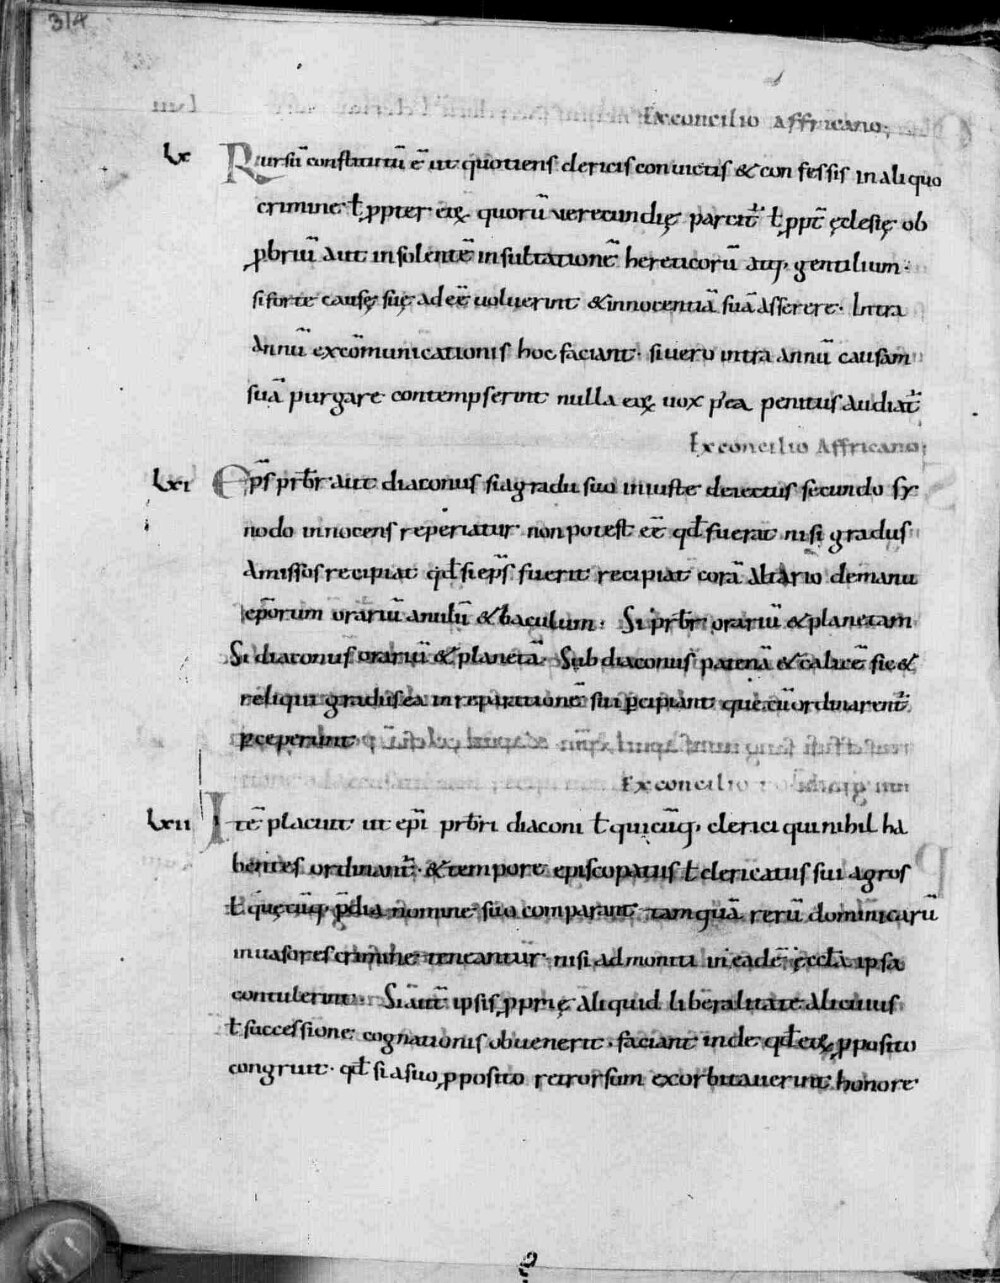 314
Ex concilio affricano;
Lx Rursū constitutū ē ut quotiens clericis conuictis & confessis in aliquo
crimine ł ꝓpter eoꝝ quorū uerecundię parcit̄ ł ꝓpt̄ ęclesię ob
ꝓbriū aut insolentē insultationē hereticorū atq; gentilium.
si forte causę suę adeē uoluerint & innocentiā suā asserere. Intra
Annū excōmunicationis hoc faciant. si uero intra annū causam
suā purgare contempserint nulla eoꝝ uox p̄ea penitus audiat̄
Ex concilio Affricano;
Lxi Ep̄s prb̄r aut diaconus si a gradu suo iniuste deiectus secundo sy
nodo innocens reperiatur non potest eē qđ fuerat nisi gradus
Amissos recipiat qđ si ep̄s fuerit recipiat corā altario de manu
ep̄orum orariū anulū & baculum. Si prb̄r orariū & planetam
Si diaconus orariū & planetā. Subdiaconus patenā & calicē sic &
reliqui gradus ea in reparationē sui ꝑcipiant que cū ordinarent̄
ꝑceperunt
Ex concilio
Lxii Itē placuit ut ep̄i prb̄ri diaconi ł quicūq; clerici qui nihil ha
bentes ordinant̄. & tempore episcopatus ł clericatus sui agros
ł quęcūq; p̄dia nomine suo comparant tamquā rerū dominicarū
inuasores crimine teneantur nisi admoniti in eadē ęccła ipsa
contulerint. Si aut̄ ipsis ꝓprię aliquid liberalitate alicuius
ł successione cognationis obuenerit. faciant inde qđ eoꝝ ꝓposito
congruit. qđ si a suo ꝓposito retrorsum exorbitauerint honore